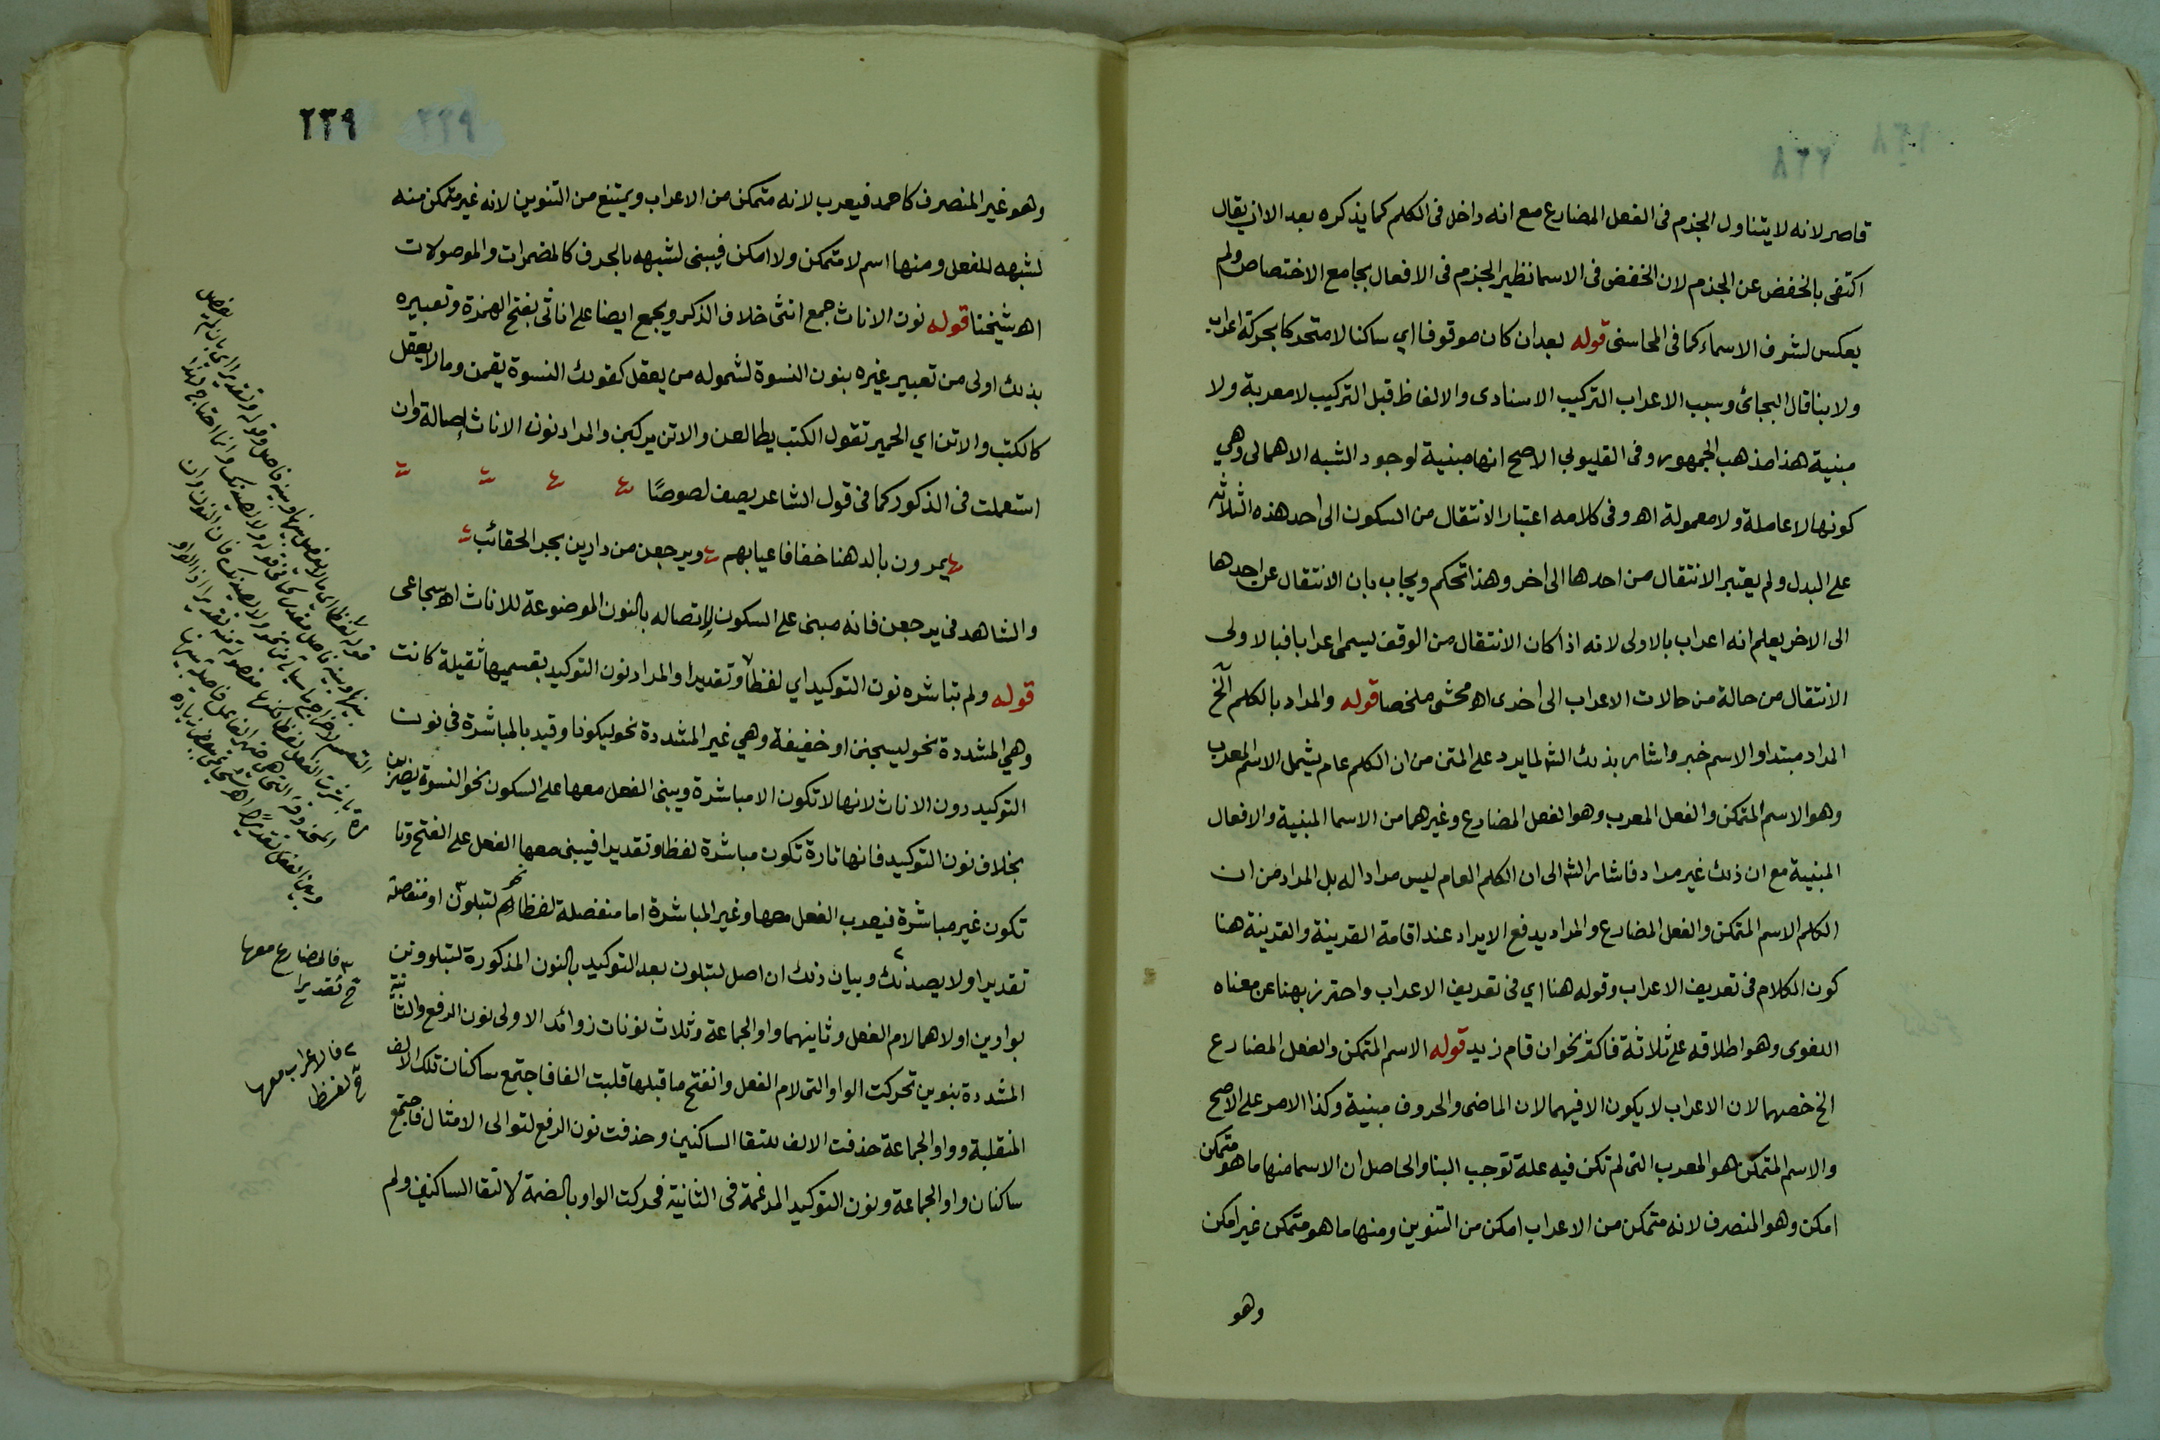 قاصر لانه لا يتناول الجزم فى الفعل المضارع مع انه داخل فى الكلم كما يذكره بعد الا ان يقال
اكتفى بالخفض عن الجزم لان الخفض فى الاسما نظير الجزم فى الافعال بجامع الاختصاص ولم
يعكس لشرف الاسماء كما فى المحاسنى قوله بعد ان كان موقوفا اي ساكنا لا متحركا بحركة اعراب
ولا بنا قال البجائى وسبب الاعراب التركيب الاسنادى والالفاظ قبل التركيب لا معربة ولا
مبنية هذا مذهب الجمهور وفى القليوبى الاصح انها مبنية لوجود الشبه الاهمالى وهي
كونها لا عاملة ولا معمولة اهـ وفى كلامه اعتبار الانتقال من السكون الى احد هذه الثلاثة
على البدل ولم يعتبر الانتقال من احدها الى اخر وهذا تحكم ويجاب بان الانتقال عن احدها
الى الاخر يعلم انه اعراب بالاولى لانه اذا كان الانتقال من الوقف يسمى اعرابا فبالاولى
الانتقال من حالة من حالات الاعراب الى اخرى اهـ محشى ملخصا قوله والمراد بالكلم الخ
المراد مبتدا والاسم خبر واشار بذلك الش لما يرد على المتن من ان الكلم عام يشمل الاسم المعرب
وهو الاسم المتمكن والفعل المعرب وهو الفعل المضارع وغيرهما من الاسما المبنية والافعال
المبنية مع ان ذلك غير مراد فاشار الش الى ان الكلم العام ليس مرادا له بل المراد من ان
الكلم الاسم المتمكن والفعل المضارع والمراد يدفع الايراد عند اقامة القرينة والقرينة هنا
كون الكلام فى تعريف الاعراب وقوله هنا اي فى تعريف الاعراب واحترز بهنا عن معناه
اللغوى وهو اطلاقه على ثلاثة فاكثر نحو ان قام زيد قوله الاسم المتمكن والفعل المضارع
الخ خصهما لان الاعراب لا يكون الا فيهما لان الماضى والحروف مبنية وكذا الامر على الاصح
والاسم المتمكن هو المعرب التى لم تكن فيه علة توجب البنا والحاصل ان الاسما منها ما هو متمكن
امكن وهو المنصرف لانه متمكن من الاعراب امكن من التنوين ومنها ما هو متمكن غير امكن
وهو
٢٣٩
وهو غير المنصرف كاحمد فيعرب لانه متمكن من الاعراب ويمتنع من التنوين لانه غير متمكن منه
لشبهه للفعل ومنها اسم لا متمكن ولا امكن فيبنى لشبهه بالحرف كالمضمرات والموصولات
اهـ شيخنا قوله نون الاناث جمع انثى خلاف الذكر ويجمع ايضا على اناثى بفتح الهمزة وتعبيره
بذلك اولى من تعبير غيره بنون النسوة لشموله من يعقل كقولك النسوة يقمن وما لا يعقل
كالكتب والاتن اي الحمير تقول الكتب يطالعن والاتن يركبن والمراد نون الاناث اصالة وان
استعملت فى الذكور كما فى قول الشاعر يصف لصوصًا
يمرون بالدهنا خفافا عيابهم ويرجعن من دارين بجر الحقائب
والشاهد فى يرجعن فانه مبنى على السكون لاتصاله بالنون الموضوعة للاناث اهـ سجاعى
قوله ولم تباشره نون التوكيد اي لفظا وتقديرا والمراد نون التوكيد بقسميها ثقيلة كانت
وهي المشددة نحو ليسجنن او خفيفة وهي غير المشددة نحو ليكونا وقيد بالمباشرة فى نون
التوكيد دون الاناث لانها لا تكون الا مباشرة ويبنى الفعل معها على السكون نحو النسوة يضربن
بخلاف نون التوكيد فانها تارة تكون مباشرة لفظا وتقديرا فيبنى معها الفعل على الفتح وتا
تكون غير مباشرة فيعرب الفعل معها وغير المباشرة اما منفصلة لفظا نحو لتبلون او منفصلة
تقديرا ولا يصدنك وبيان ذلك ان اصل لتبلون بعد التوكيد بالنون المذكورة لتبلوونن
بواوين اولاهما لام الفعل وثانيهما واو الجماعة وثلاث نونات زوائد الاولى نون الرفع والثانية
المشددة بنوين تحركت الواو التى لام الفعل وانفتح ما قبلها قلبت الفا فاجتمع ساكنان تلك الالف
المنقلبة وواو الجماعة حذفت الالف لالتقا الساكنين وحذفت نون الرفع لتوالى الامثال فاجتمع
ساكنان واو الجماعة ونون التوكيد المدغمة فى الثانية فحركت الواو بالضمة لالتقا الساكنين ولم
٣ فالمضارع معها
تقديرا
٢ فالاعراب معها
لفظا